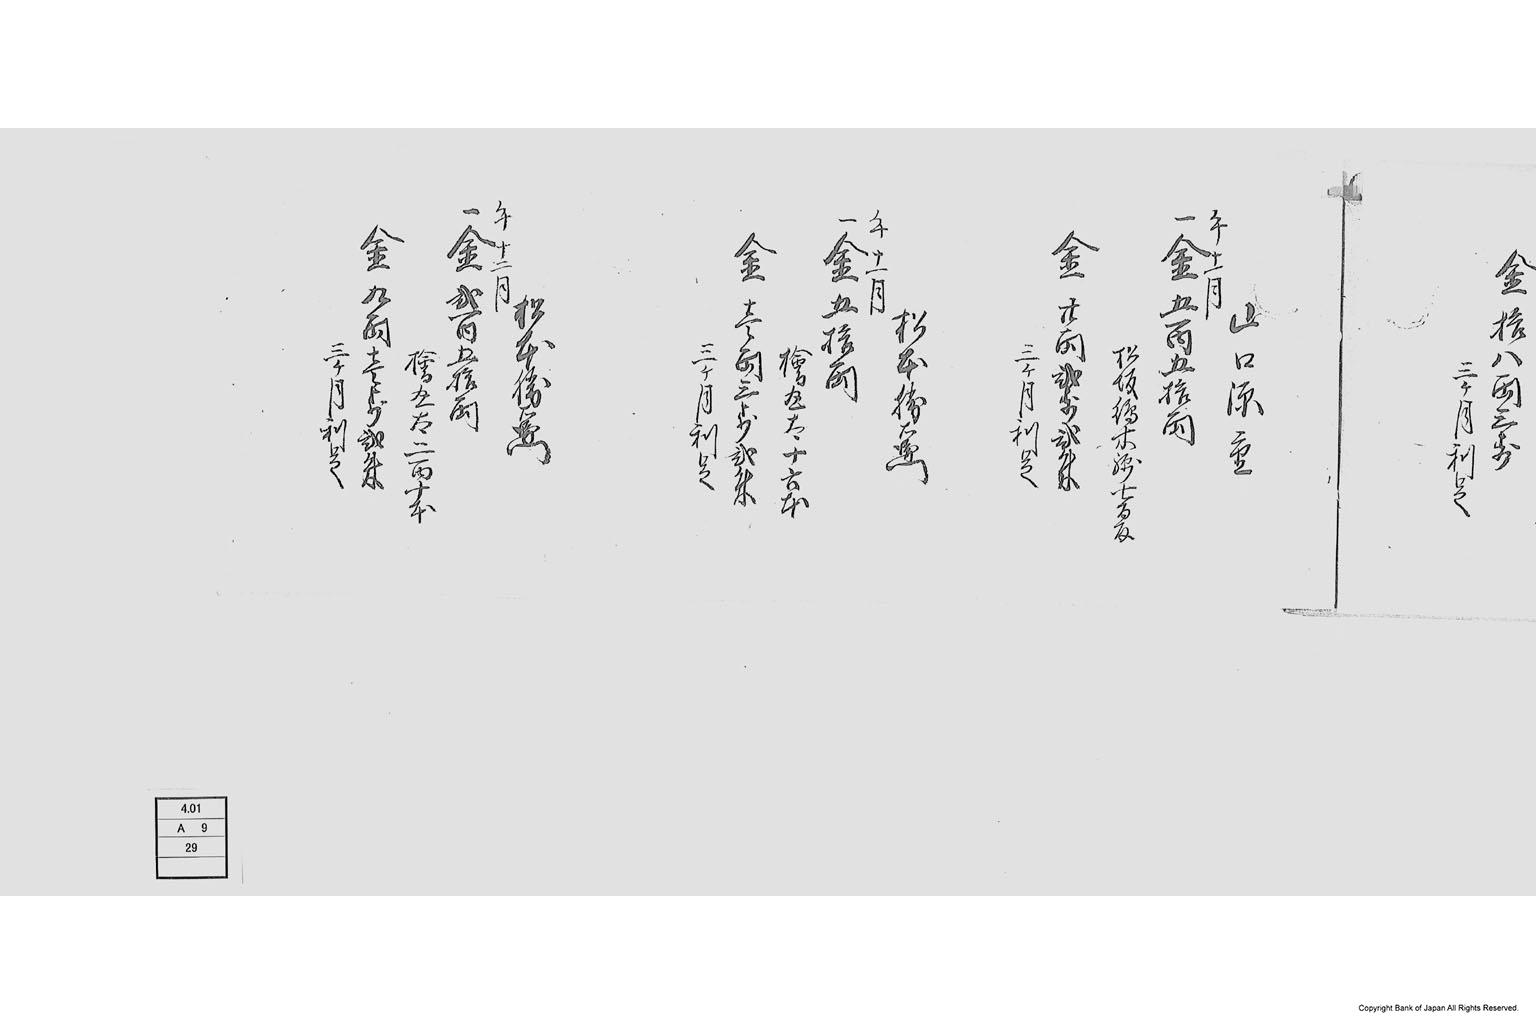 金拾八両三歩
三ヶ月利足
山口源重
午十一月
一金五百五拾両
松坂縞木綿七百反
金廿両弐歩弐朱
三ヶ月利足
松本勝
午十一月
一金五拾両
檜五太十六本
金壱両三歩弐朱
三ヶ月利足
松本勝
午十二月
一金弐百五拾両
檜五太二百十本
金九両壱歩弐朱
三ヶ月利足
4.01
A 9
29
Copyright Bank of Japan All Rights Reserved.